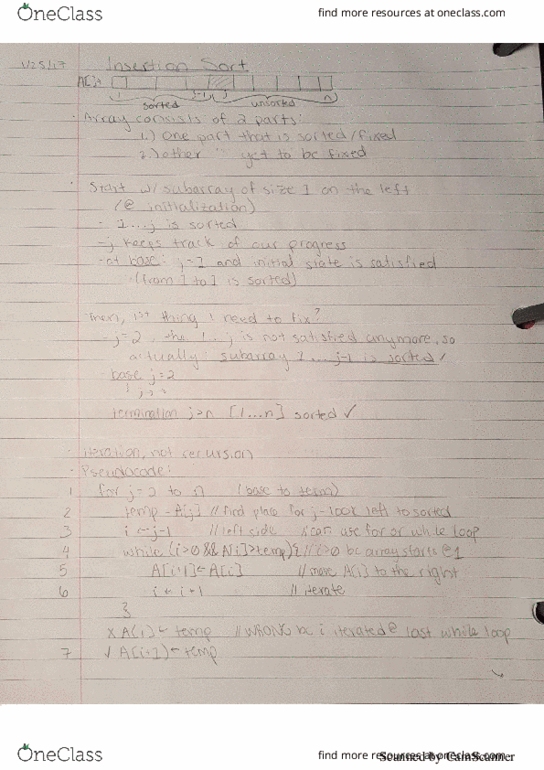 OneClass find more resources at oneclass.com
1/25/17 Insertion Sort
A[j]
1 j-1 j n
sorted unsorted
Array consists of 2 parts:
1.) One part that is sorted/fixed
2.) other " yet to be fixed
Start w/ subarray of size 1 on the left
(@ initialization)
- 1...j is sorted
- j keeps track of our progress
- at base: j=1 and initial state is satisfied
(from 1 to 1 is sorted)
Then, 1st thing I need to fix?
- j=2, the 1...j is not satisfied anymore, so
actually: subarray 1...j-1 is sorted ✓
- base j=2
termination j>n [1...n] sorted ✓
- iteration, not recursion
- Pseudocode:
1 for j=2 to n (base to term)
2 temp ← A[j] // find place for j - look left to sorted
3 i ← j-1 // left side // can use for or while loop
4 while (i>0 && A[i]>temp){ // i>0 bc array starts @ 1
5 A[i+1] ← A[i] // move A[i] to the right
6 i ← i-1 // iterate
}
x A[i] ← temp // WRONG bc i iterated @ last while loop
7 ✓ A[i+1] ← temp
OneClass find more resources at oneclass.com
Scanned by CamScanner